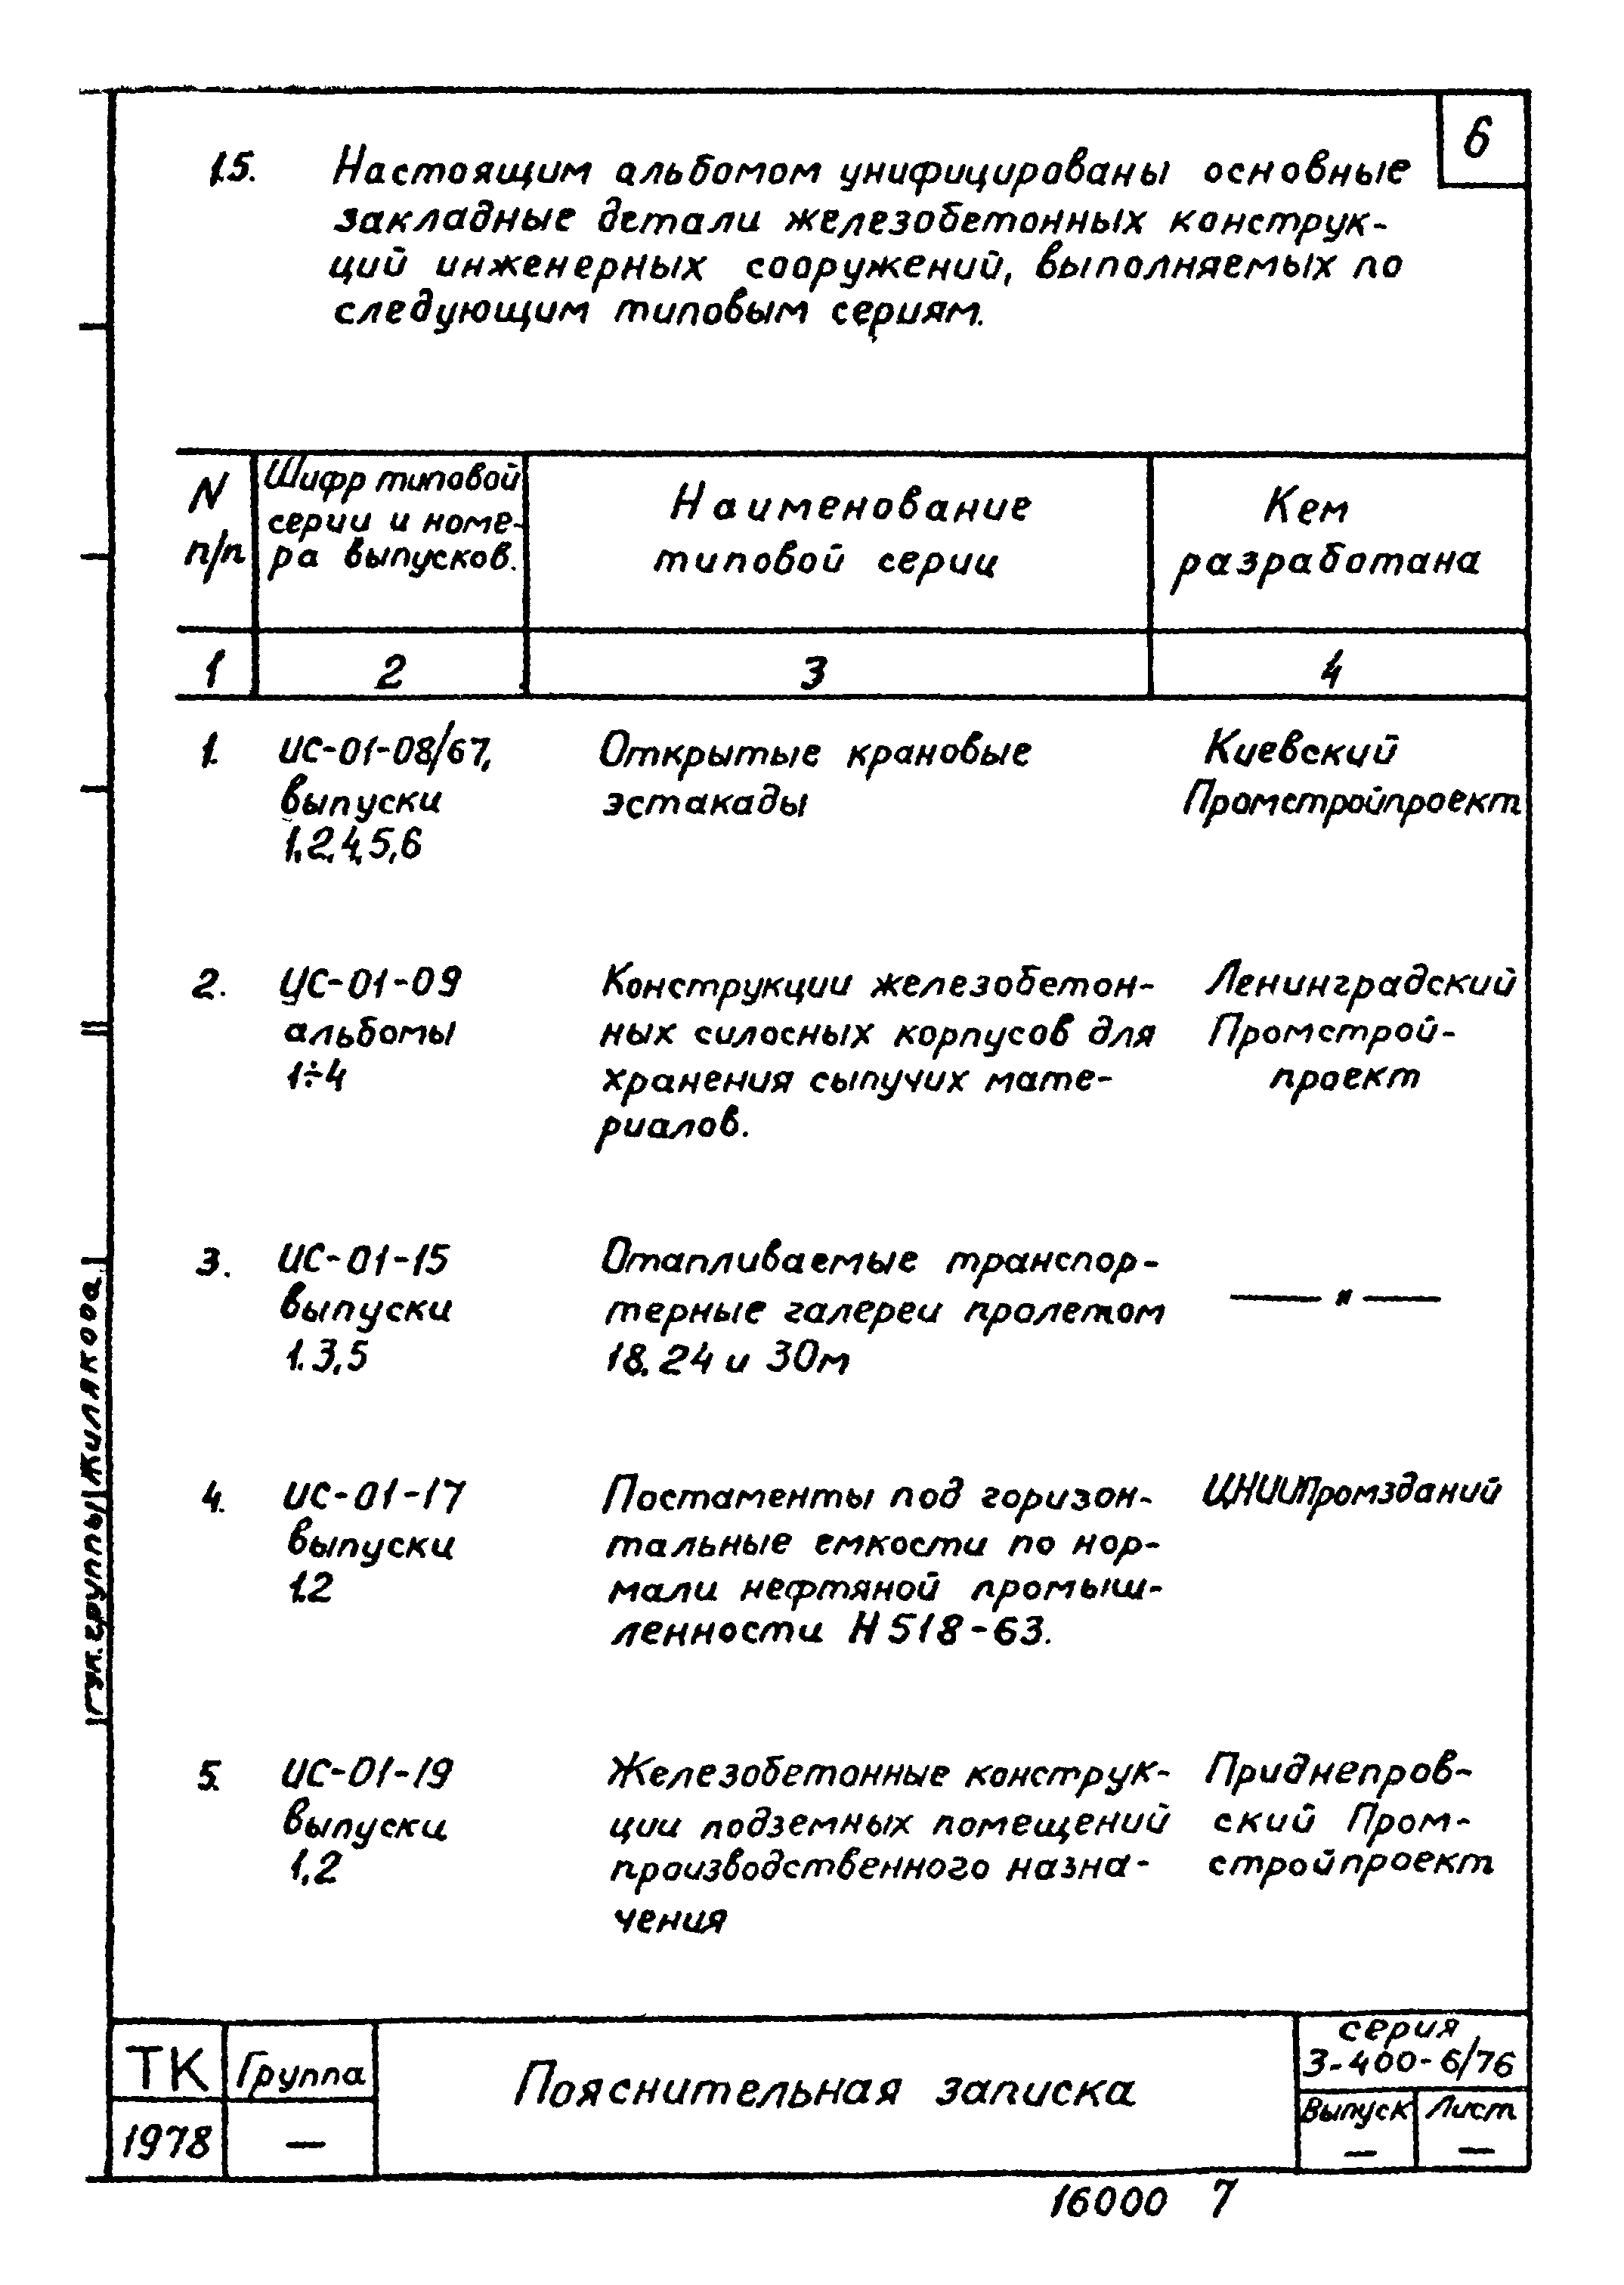 6
1.5. Настоящим альбомом унифицированы основные
закладные детали железобетонных конструк-
ций инженерных сооружений, выполняемых по
следующим типовым сериям.
N п/п
Шифр типовой
серии и номе-
ра выпусков.
Наименование
типовой серии
Кем
разработана
1 2 3 4
1. ИС-01-08/67, Открытые крановые Киевский
выпуски эстакады Промстройпроект
1,2,4,5,6
2. ИС-01-09 Конструкции железобетон- Ленинградский
альбомы ных силосных корпусов для Промстрой-
1÷4 хранения сыпучих мате- проект
риалов.
3. ИС-01-15 Отапливаемые транспор-
выпуски терные галереи пролетом — " —
1.3,5 18,24 и 30м
4. ИС-01-17 Постаменты под горизон- ЦНИИПромзданий
выпуски тальные емкости по нор-
1.2 мали нефтяной промыш-
ленности Н 518-63.
5. ИС-01-19 Железобетонные конструк- Приднепров-
выпуски ции подземных помещений ский Пром-
1,2 производственного назна- стройпроект
чения
Рук. группы Жилякова
ТК Группа
1978 —
Пояснительная записка
серия
3-400-6/76
Выпуск Лист
— —
16000 7